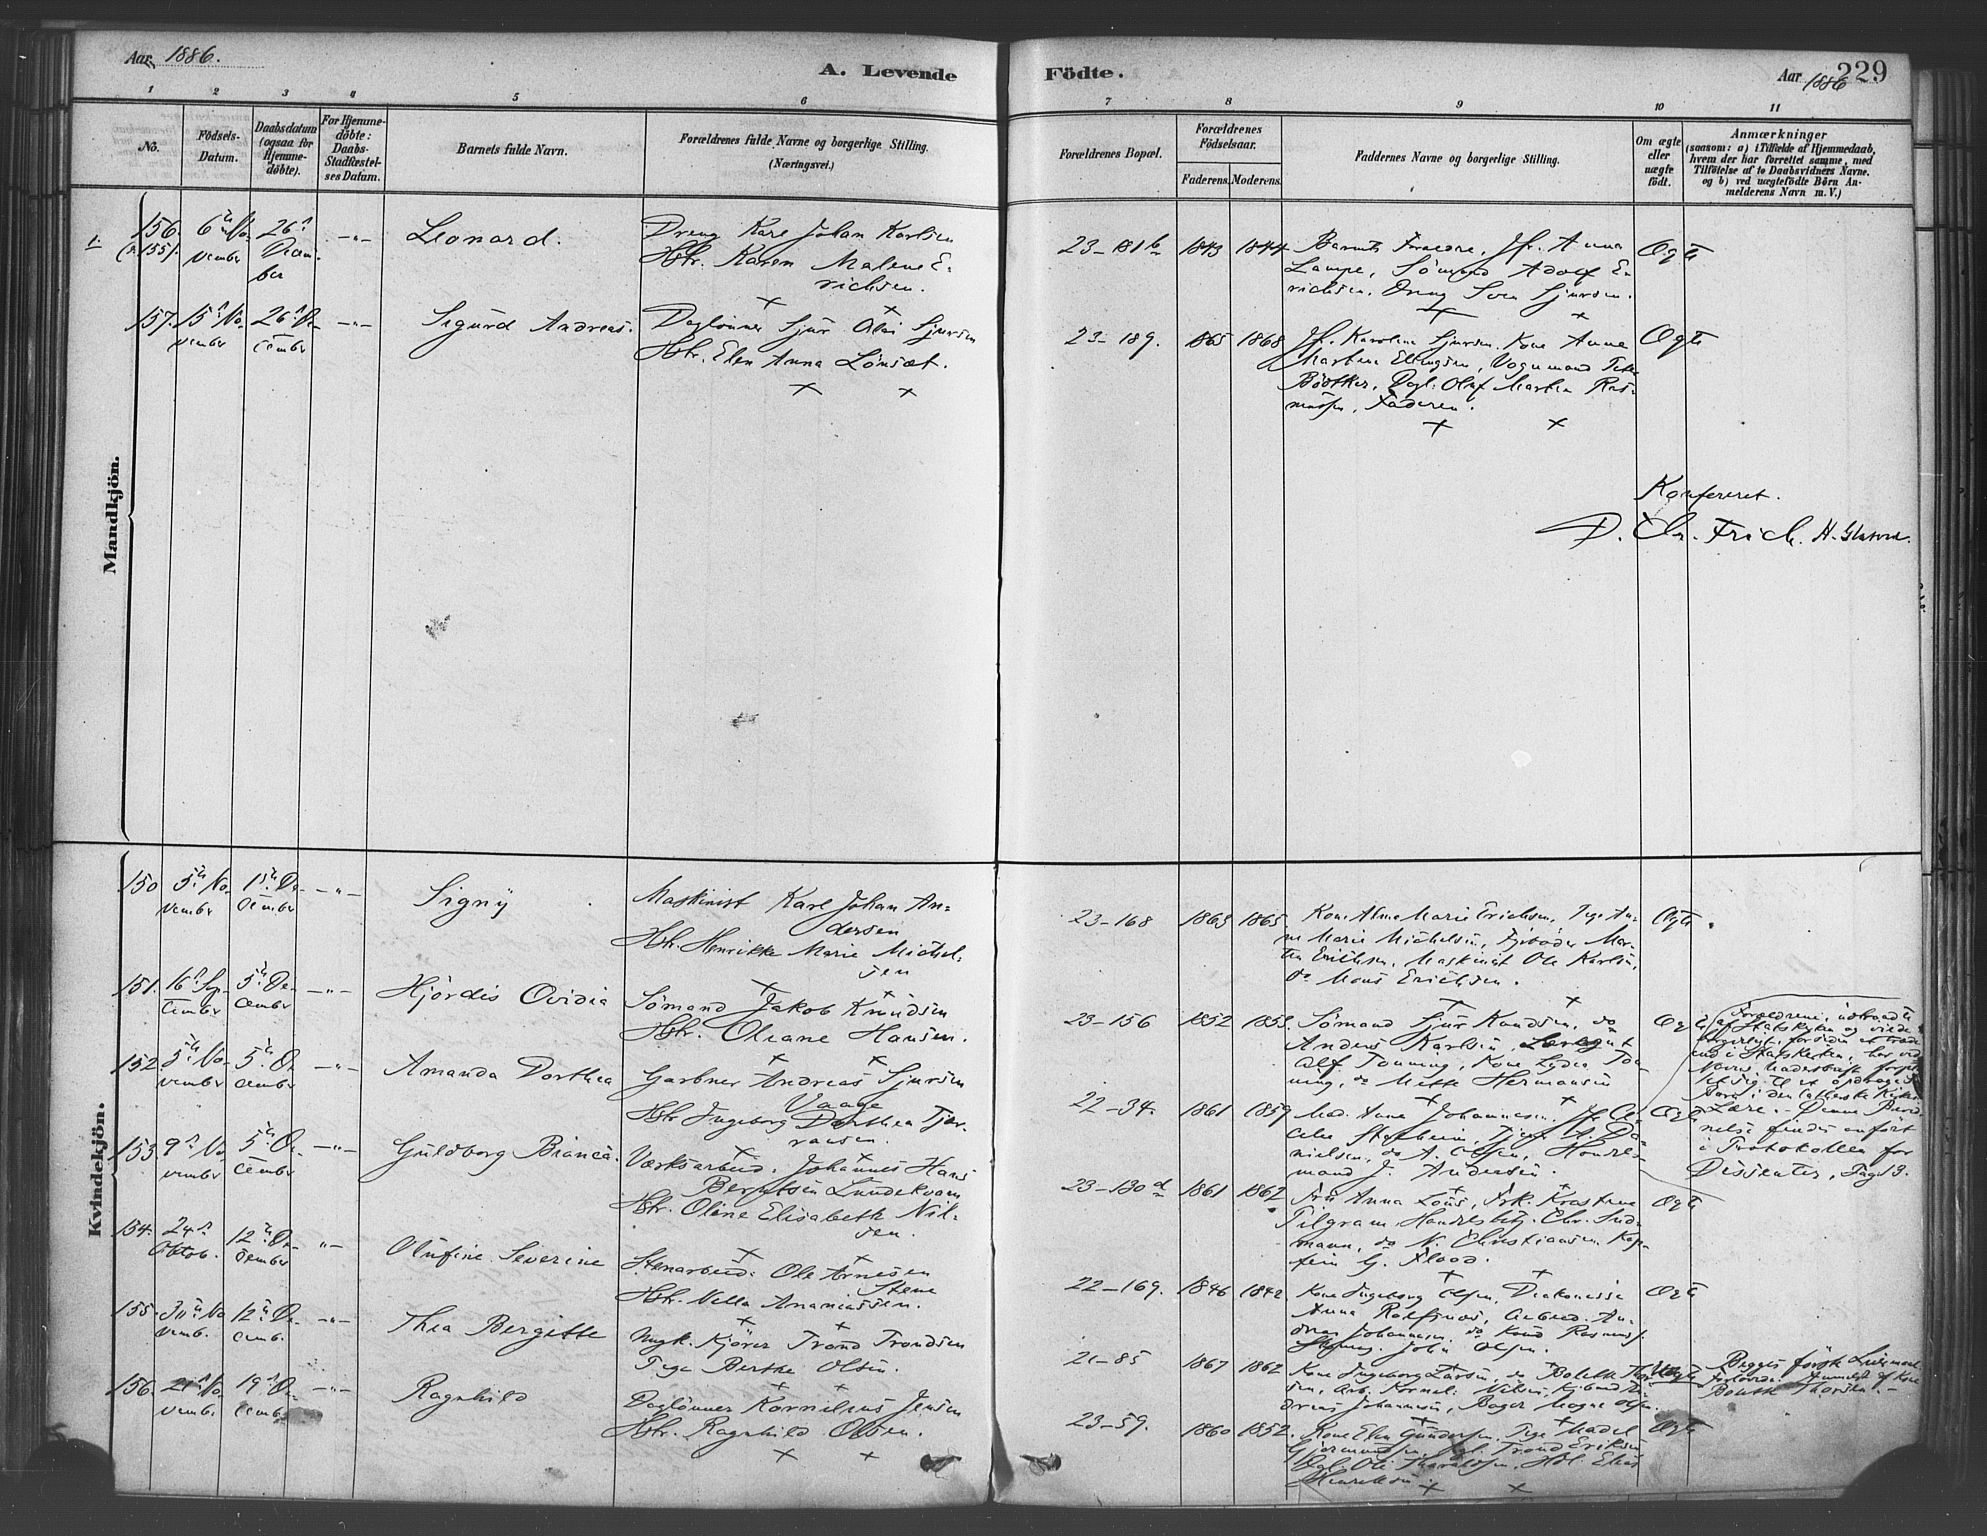 Aar 1886.
A. Levende
Födte.
Aar 1886
229
1
2
3
4
5
6
7
8
9
10
11
No.
Födsels-
Datum.
Daabsdatum
(ogsaa for
Hjemme-
döbte).
For Hjemme-
döbte:
Daabs-
Stadfæstel-
ses Datum.
Barnets fulde Navn.
Forældrenes fulde Navne og borgerlige Stilling.
(Næringsvei.)
Forældrenes Bopæl.
Forældrenes
Födselsaar.
Faderens.
Moderens.
Faddernes Navne og borgerlige Stilling.
Om ægte
eller
uægte
födt.
Anmærkninger
(saasom: a) i Tilfælde af Hjemmedaab,
hvem der har forrettet samme, med
Tilföielse af to Daabsvidners Navne.
og b) ved uægtefödte Börn An-
melderens Navn m. V.)
Mandkjön.
156.
6 No-
vember
26
Decem-
ber
Leonard.
Dreng Karl Johan Karlsen
Hstr. Karen Malene E-
richsen.
23-181b
1843
1844
Barnets Forældre, Jfr. Anna
Lampe, Sömand Adolf E-
richsen, Dreng Sven Sjursen.
Ægte
157.
15 No-
vember
26 De-
cember
Sigurd Andreas.
Daglönner Sjur Olai Sjursen
Hstr. Elen Anna Lönsæt.
23-189.
1865
1868
Jfr. Karoline Sjursen. Kone Anne
Martine Ellingsen, Vognmand
Bödtker, Dagl. Oluf Martin Ras-
mussen, Faderen.
Ægte
Konfereret.
D. Chr. Frich.
Kvindekjön.
150
5 No-
vember
15 De-
cember
Signy
Maskinist Karl Johan An-
dersen
Hstr. Henrikke Marie Michel-
sen
23-168
1863
1865
Kone Alma Marie Erichsen, Pige An-
ne Marie Michelsen, Mar-
tin Erichsen, Maskinist Ole Karlsen,
do Mons Erichsen.
Ægte
151.
16 Sep-
tember
5 De-
cember
Hjördis Ovidia
Sömand Jakob Knudsen
Hstr. Oleane Hansen.
23-156
1852
1853
Sömand Sjur Knudsen, do
Anders Karlsen,
Alf Tonning, Kone Lydia Ton-
ning, do Mette Hermansen
Ægte
Forældrene, udtraadte
af Statskirken og viede
borgerligt,
i Statskirken, har ved
i den lutherske Kirkes
Lære. - Denne
findes anfört
i Protokollen for
Dissenter, Pag 13.
152
5 No-
vember
5 De-
cember
Amanda Dorthea
Garbner Andreas Sjursen
Vaage
Hstr Ingeborg Dorthea
22-34.
1861
1859
Mad. Anne Johannesen,
nielsen, do A. Olsen, Handels-
mand J. Andersen.
Ægte
153
9 No-
vember
5 De-
cember
Guldborg Bianca.
Værksarbeid. Johannes Hans
Berntsen Lundekvam
Hstr. Oline Elisabeth Nil-
sen.
23-130d
1861
1862
Fru Anna Lous, Frk. Kristine
Pilgram, Handelsbetj. Chr. Lind-
mann, do N. Christiansen Kap-
tein G. Flood.
Ægte
154.
24
Oktob.
12 De-
cember
Olufine Severine
Stenarbeid. Ole Arnesen
Stene
Hstr. Nilla Ananiassen.
22-169.
1846
1842
Kone Ingeborg Olsen, Diakonisse
Anna Rolfsnes, Arbeid. An-
dreas Johannesen, do Knud Rasmuss.
John Olsen.
Ægte
155.
30 No
vemb.
12 De-
cemb.
Thea Bergitte
Ungk. Kjörer Trond Trondsen
Pige Berthe Olsen.
21-85
1867
1862
Kone Ingeborg Larsen, do Bolette Thor-
sen, Arb. Kornel. Nilsen, An-
dreas Johannesen, Bager Mogne Olsen.
Uægte
Begges förste Leiermaal
forlovede. Anmeldt af Kone
Bolette Thorsen. -
156.
21 No-
vember
19 De-
cember
Ragnhild
Daglönner Kornelius Jensen
Hstr. Ragnhild Olsen.
23-59.
1860
1852.
Kone Elen Gundersen, Pige Madel
Gjermundsen, Dagl. Trond Eriksen
Dagl. Ole Haraldsen. Elias
Henriksen.
Ægte